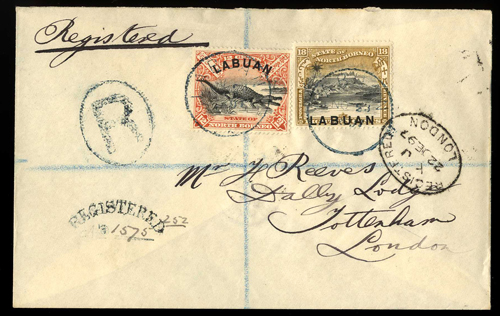 Registered
LABUAN
STATE OF
NORTH BORNEO
18 STATE OF 18
NORTH BORNEO
LABUAN
R
REGISTERED LONDON
22 DE 97
Mr H Reeves
Dally Lodge
Tottenham
London
REGISTERED
1575
252